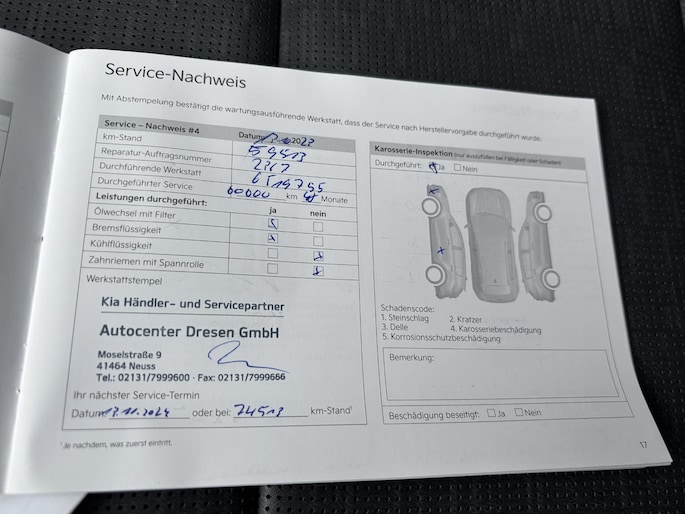 Service-Nachweis
Mit Abstempelung bestätigt die wartungsausführende Werkstatt, dass der Service nach Herstellervorgabe durchgeführt wurde.
Service – Nachweis #4 Datum 2023
km-Stand 59513
Reparatur-Auftragsnummer
Durchführende Werkstatt
Durchgeführter Service 60000 km Monate
Leistungen durchgeführt: ja nein
Ölwechsel mit Filter
Bremsflüssigkeit
Kühlflüssigkeit
Zahnriemen mit Spannrolle
Werkstattstempel
Kia Händler- und Servicepartner
Autocenter Dresen GmbH
Moselstraße 9
41464 Neuss
Tel.: 02131/7999600 · Fax: 02131/7999666
Ihr nächster Service-Termin
Datum 13.11.2024 oder bei: 74513 km-Stand¹
¹Je nachdem, was zuerst eintritt.
Karosserie-Inspektion (nur auszufüllen bei Fälligkeit oder Schäden)
Durchgeführt: Ja Nein
Schadenscode:
1. Steinschlag 2. Kratzer
3. Delle 4. Karosseriebeschädigung
5. Korrosionsschutzbeschädigung
Bemerkung:
Beschädigung beseitigt: Ja Nein
17